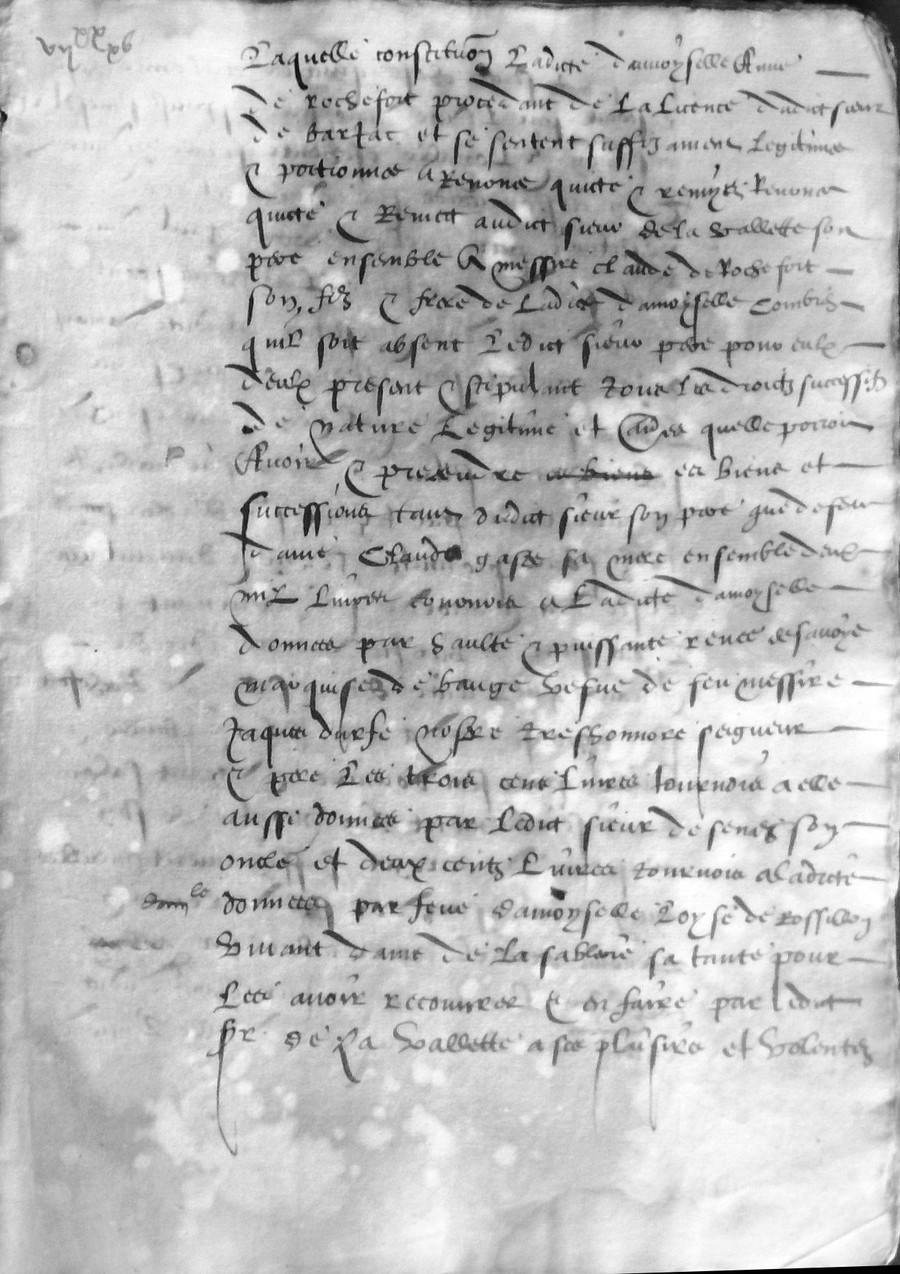 vii xx xv
Laquelle constitution ladicte damoyselle Anne
de rochefort procedant de la licence dudict sieur
de barjac et se sentent suffizamen legitimee
& portionnee a Renonce quicte & remys Renonce
quicte & Remect audict sieur de la vallette son
pere ensemble A messire claude de Rochefort
son filz & frere de Ladicte damoyselle Combien
quil soit absent Ledict sieur pere pour eulx
deulx present & stipulant tous les droictz successifz
de nature Legitime et aultres quelle porroit
Avoir & pretendre es biens es biens et
successions tant dudict sieur son pere que de feue
dame Claude gaste sa mere ensemble deux
mil Livres tournois a Ladicte damoyselle
donnees par haulte & puissante renee de savoye
marquise de bauge vefve de feu messire
Jaques durfe nostre treshonnore seigneur
& pere Les trois cens Livres tournois a elle
aussi donnees par Ledict sieur de senes son
oncle et deux centz Livres tournois a ladicte
damlle donnees par feue damoyselle Loyse de Rossillon
vivant dame de La sabliere sa tante pour
Les avoir recouvrer & en faire par ledict
sr de La vallette a ses plaisirs et volentez